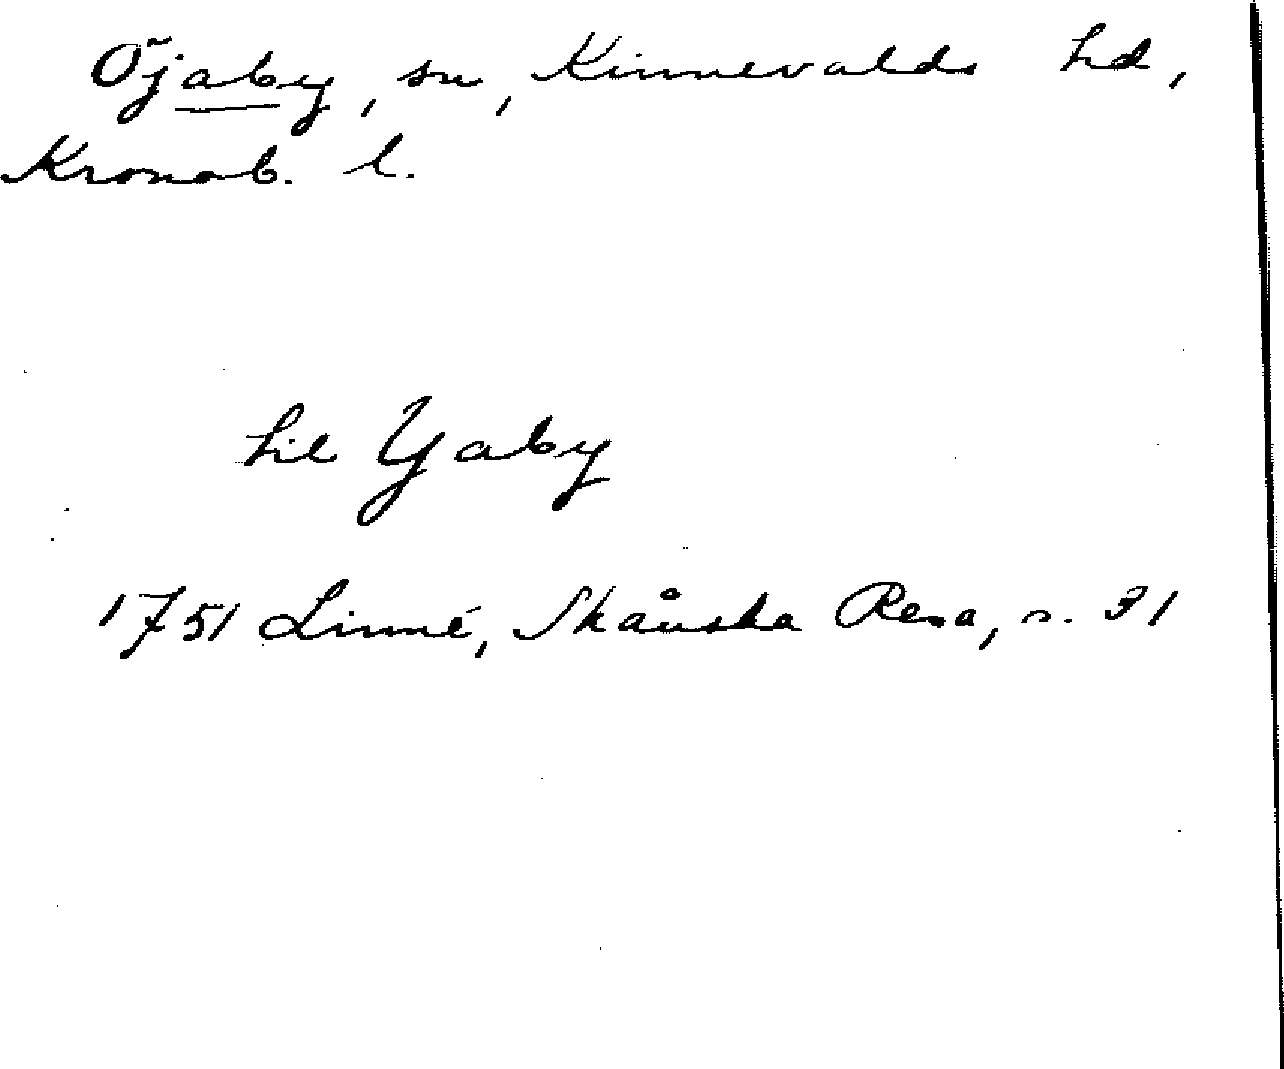 Öjaby, sn, Kinnevalds hd,
Kronob. l.
til Yaby
1751 Linné, Skånska Resa, s. 31